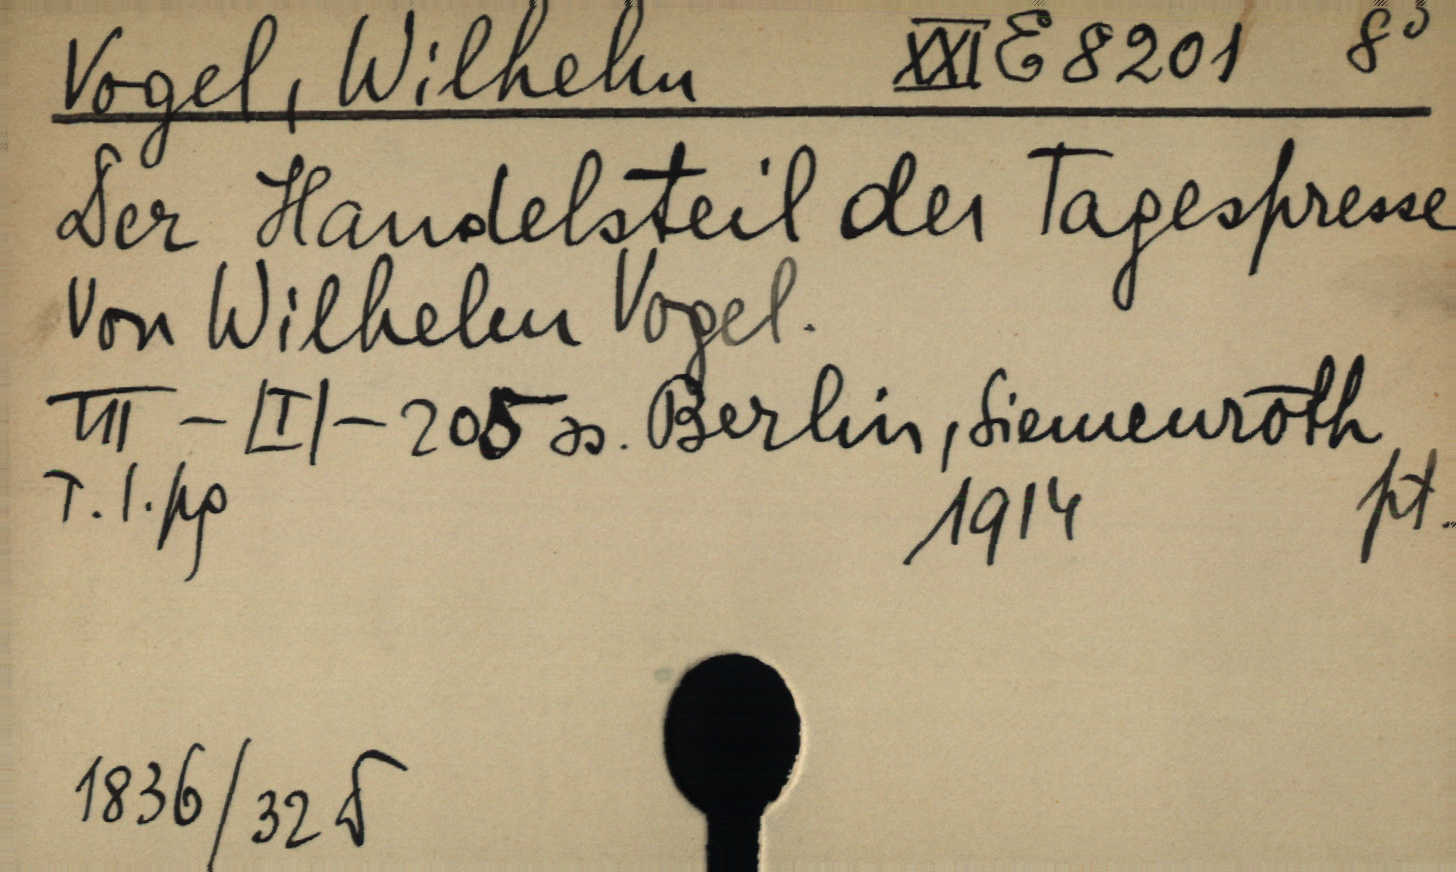 Vogel, Wilhelm XXI E 8201 8°
Der Handelsteil der Tagespresse
Von Wilhelm Vogel.
VII - [I] - 205 ss. Berlin, Siemenroth
T. l. pp 1914 pt.
1836/32 δ